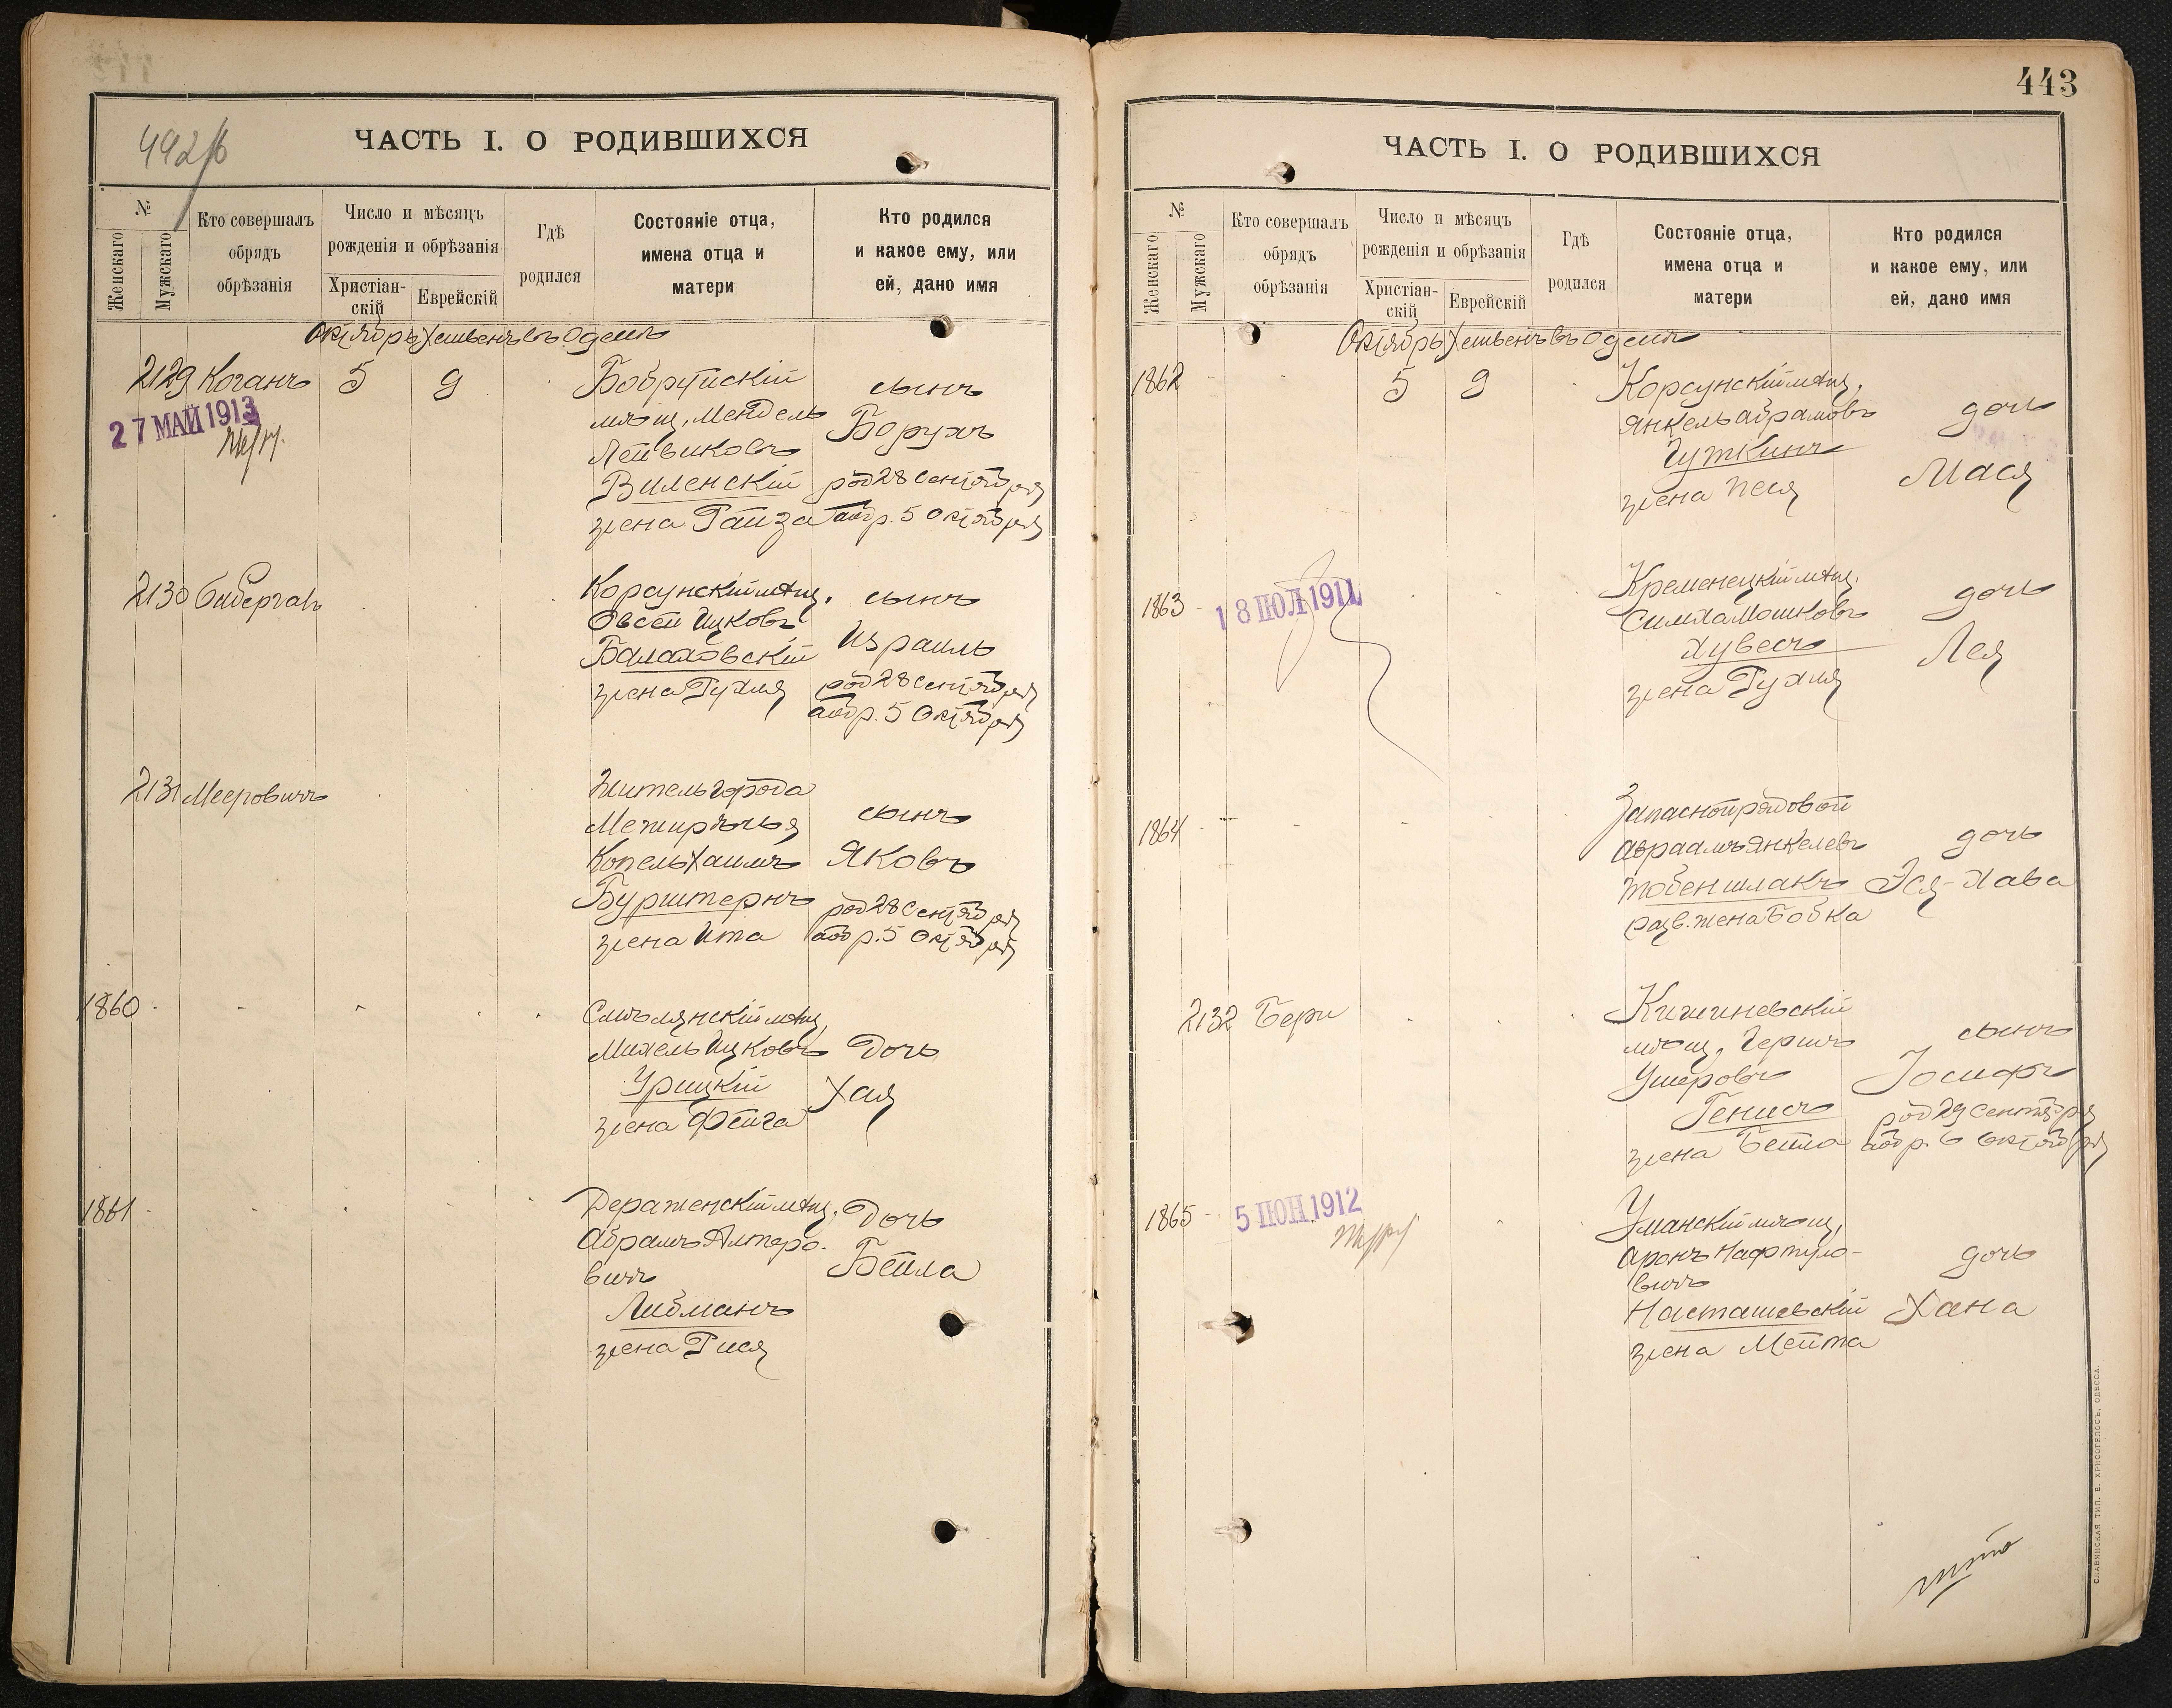 442/б
ЧАСТЬ I. О РОДИВШИХСЯ
№
Женскаго
Мужскаго
Кто совершалъ
обрядъ
обрѣзанія
Число и мѣсяцъ
рожденія и обрѣзанія
Христіан-
скій
Еврейскій
Гдѣ
родился
Состояніе отца,
имена отца и
матери
Кто родился
и какое ему, или
ей, дано имя
Октябрь Хешвенъ въ Одессѣ
2129 Коганъ 5 9
27 МАЙ 1913
Бобруйскій
мѣщ. Мендель
Лейвиковъ
Виленскій
жена Гайза
сынъ
Борухъ
род 28 Сентября
обр. 5 Октября
2130
Корсунскій мѣщ.
Овсей Ицковъ
Балаховскій
жена Рухля
сынъ
Израиль
род 28 Сентября
обр. 5 Октября
2131 Мееровичъ
Житель города
Межирѣчья
Копель Хаимъ
Бурштернъ
жена Ита
сынъ
Яковъ
род 28 Сентября
обр. 5 Октября
1860
Смѣлянскій мѣщ.
Михель Ицковъ
Урицкій
жена Фейга
Дочь
Хая
1861
Дераженскій мѣщ.
Абрамъ Алтеро-
вичъ
Либманъ
жена Рися
Дочь
Бейла
443
ЧАСТЬ I. О РОДИВШИХСЯ
№
Женскаго
Мужскаго
Кто совершалъ
обрядъ
обрѣзанія
Число и мѣсяцъ
рожденія и обрѣзанія
Христіан-
скій
Еврейскій
Гдѣ
родился
Состояніе отца,
имена отца и
матери
Кто родился
и какое ему, или
ей, дано имя
Октябрь Хешвенъ въ Одессѣ
1862 5 9
Корсунскій мѣщ.
Янкель Абрамовъ
Гуткинъ
жена Песя
дочь
Мася
1863
18 ІЮЛ 1911
Кременецкій мѣщ.
Симха Мошковъ
Хувесъ
жена Рухля
дочь
Лея
1864
Запасной рядовой
Авраамъ Янкелевъ
Тобеншлакъ
разв. жена Бобка
дочь
Эся-Хава
2132 Бери
Кишиневскій
мѣщ. Гершъ
Ушеровъ
Генисъ
жена Бейла
сынъ
Іосифъ
род 29 Сентября
обр. 6 Октября
1865
5 ІЮН 1912
Уманскій мѣщ.
Аронъ Нафтуло-
вичъ
Насташевскій
жена Мейта
дочь
Хана
СЛАВЯНСКАЯ ТИП. Е. ХРИСОГЕЛОСЪ, ОДЕССА.